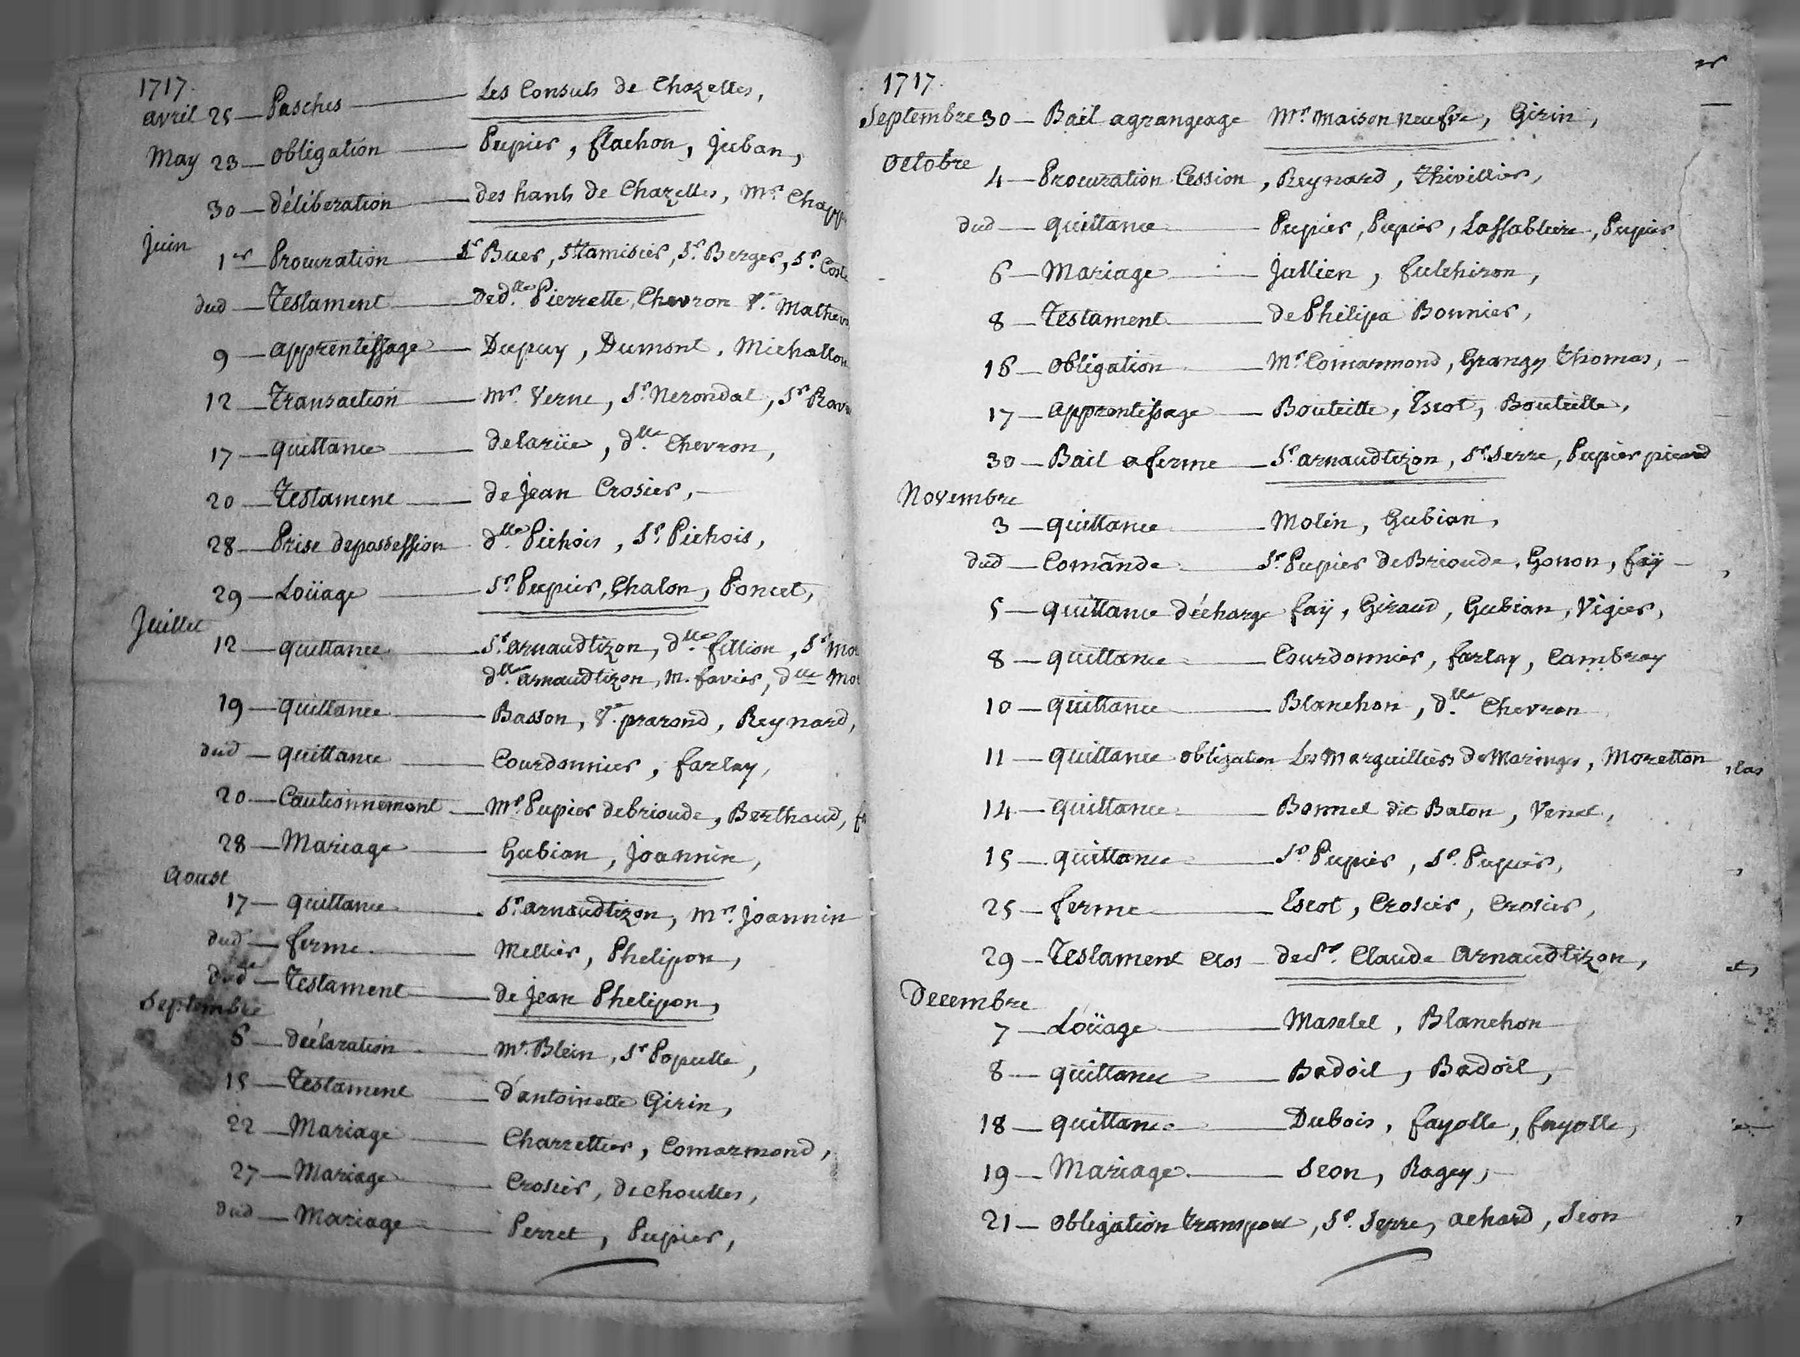 1717.
avril 25 — Pasches — Les Consuls de Chazelles,
May 23 — obligation — Pupier, flachon, Juban,
30 — délibération — des hants de Chazelles, Mr. Chapp
Juin
1er — Procuration — Sr Buer, Stamisier, Sr. Berger, Sr. Coste
dud — Testament — de dlle Pierrette Chevron Ve Mathev
9 — apprentissage — Dupuy, Dumont, Michallon
12 — Transaction — Mr. Verne, Sr. Nerondal, Sr Rav
17 — quittance — delarüe, dlle Chevron,
20 — Testament — de Jean Crosier,
28 — Prise depossession dlle Pichois, Sr. Pichois,
29 — Loüage — Sr. Pupier, Chalon, Poncet,
Juillet
12 — quittance — Sr. arnaudtizon, dlle fillion, Sr Mo
dlle arnaudtizon, M. favier, dlle Mo
19 — quittance — Basson, Ve. prarond, Reynard,
dud — quittance — Courdonnier, farlay,
20 — Cautionnement — Mr. Pupier debrioude, Berthaud, f
28 — Mariage — Gubian, Joannin,
Aoust
17 — quittance — Sr. arnaudtizon, Mr. Joannin
dud — ferme — Mellier, Phelipon,
dud — Testament — de Jean Phelipon,
Septembre
6 — déclaration — Mr. Blein, Sr Populle,
15 — Testament — d'antoinette Girin,
22 — Mariage — Charrettier, Comarmond,
27 — Mariage — Crosier, dechoulles,
dud — Mariage — Perret, Pupier,
1717.
Septembre 30 — Bail agrangeage Mr. Maison neufve, Girin,
Octobre
4 — Procuration Cession, Reynard, Thivillier,
dud — quittance — Pupier, Pupier, Lassabliere, Pupier
6 — Mariage — Jullien, fulchiron,
8 — Testament — de Philipa Bonnier,
16 — obligation — Mr Comarmond, Grangy Thomas,
17 — apprentissage — Bouteille, Escot, Bouteille,
30 — Bail a ferme — Sr. arnaudtizon, Sr. Serre, Pupier picard
Novembre
3 — quittance — Molin, Gubian,
dud — Comānde — Sr. Pupier de Brioude, Gonon, faÿ
5 — quittance décharge faÿ, Giraud, Gubian, Vigier,
8 — quittance — Courdonnier, farlay, Cambray
10 — quittance — Blanchon, dlle Chevron
11 — quittance obligation Les Marguilliers de Maringes, Moretton
14 — quittance — Bonnel dit Baton, Venet,
15 — quittance — Sr Pupier, Sr. Pupier,
25 — ferme — Escot, Crosier, Crosier,
29 — Testament Clos — de Sr. Claude Arnaudtizon,
Decembre
7 — Loüage — Masclet, Blanchon
8 — quittance — Badoil, Badoil,
18 — quittance — Dubois, fayolle, fayolle,
19 — Mariage — Seon, Ragey,
21 — obligation transport, Sr. Serre, achard, Seon